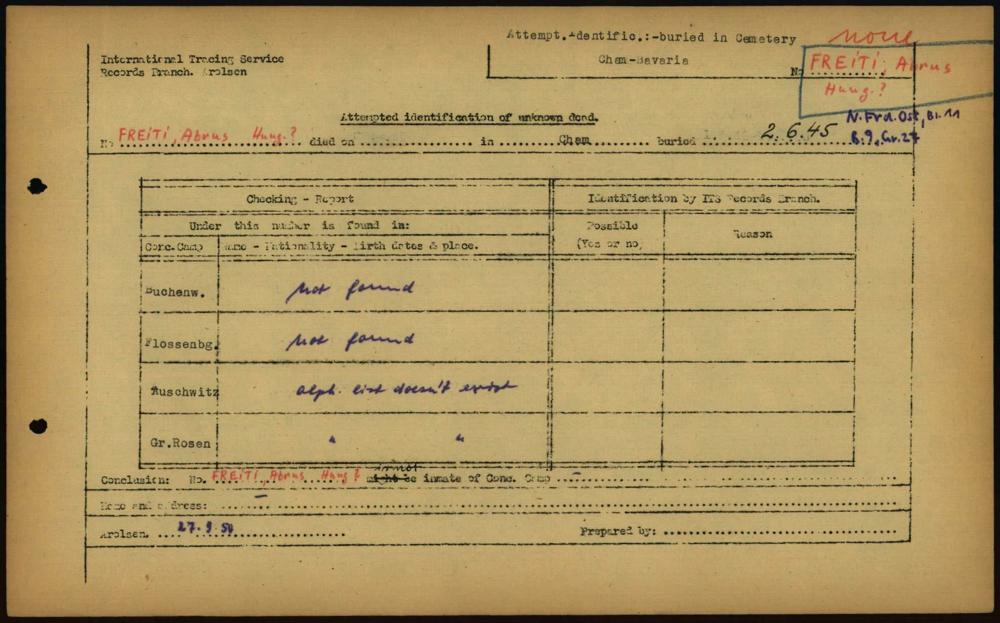 Attempt. Identific.:-buried in Cemetery none
International Tracing Service Cham-Bavaria No FREITI, Abrus
Records Branch. Arolsen Hung.?
Attempted identification of unknown dead. N.Frd.Ost, Bl.11
No FREITI, Abrus Hung.? died on ........ in ..... Cham ....... buried ..... 2.6.45 R.9, Gr.27
Checking - Report Identification by ITS Records Branch.
Under this number is found in: Possible Reason
Conc.Camp Name - Nationality - Birth dates & place. (Yes or no)
Buchenw. not found
Flossenbg. not found
Auschwitz alph. list doesn't exist
Gr.Rosen " "
Conclusion: No. FREITI, Abrus Hung? might be inmate of Conc. Camp ..... - .....
Name and address: - .....
Arolsen. .... 27.9.50 ..... Prepared by: .....